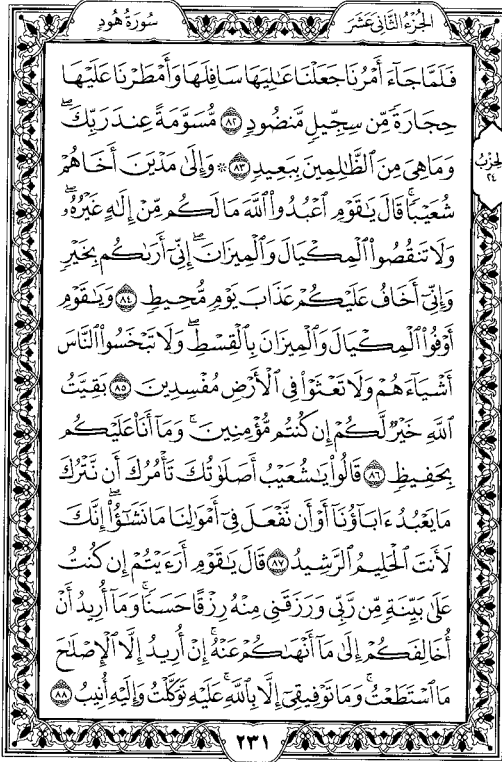 سُورَةُ هُودٍ
الجُزْءُ الثَّانِي عَشَرَ
فَلَمَّا جَآءَ أَمْرُنَا جَعَلْنَا عَٰلِيَهَا سَافِلَهَا وَأَمْطَرْنَا عَلَيْهَا
حِجَارَةً مِّن سِجِّيلٍ مَّنضُودٍ ٨٢ مُّسَوَّمَةً عِندَ رَبِّكَۖ
وَمَا هِيَ مِنَ ٱلظَّٰلِمِينَ بِبَعِيدٍ ٨٣ ۞ وَإِلَىٰ مَدْيَنَ أَخَاهُمْ
شُعَيْبًاۚ قَالَ يَٰقَوْمِ ٱعْبُدُوا۟ ٱللَّهَ مَا لَكُم مِّنْ إِلَٰهٍ غَيْرُهُۥۖ
وَلَا تَنقُصُوا۟ ٱلْمِكْيَالَ وَٱلْمِيزَانَۖ إِنِّيٓ أَرَىٰكُم بِخَيْرٍ
وَإِنِّيٓ أَخَافُ عَلَيْكُمْ عَذَابَ يَوْمٍ مُّحِيطٍ ٨٤ وَيَٰقَوْمِ
أَوْفُوا۟ ٱلْمِكْيَالَ وَٱلْمِيزَانَ بِٱلْقِسْطِۖ وَلَا تَبْخَسُوا۟ ٱلنَّاسَ
أَشْيَآءَهُمْ وَلَا تَعْثَوْا۟ فِي ٱلْأَرْضِ مُفْسِدِينَ ٨٥ بَقِيَّتُ
ٱللَّهِ خَيْرٌ لَّكُمْ إِن كُنتُم مُّؤْمِنِينَۚ وَمَآ أَنَا۠ عَلَيْكُم
بِحَفِيظٍ ٨٦ قَالُوا۟ يَٰشُعَيْبُ أَصَلَوٰتُكَ تَأْمُرُكَ أَن نَّتْرُكَ
مَا يَعْبُدُ ءَابَآؤُنَآ أَوْ أَن نَّفْعَلَ فِيٓ أَمْوَٰلِنَا مَا نَشَٰٓؤُا۟ۖ إِنَّكَ
لَأَنتَ ٱلْحَلِيمُ ٱلرَّشِيدُ ٨٧ قَالَ يَٰقَوْمِ أَرَءَيْتُمْ إِن كُنتُ
عَلَىٰ بَيِّنَةٍ مِّن رَّبِّي وَرَزَقَنِي مِنْهُ رِزْقًا حَسَنًاۚ وَمَآ أُرِيدُ أَنْ
أُخَالِفَكُمْ إِلَىٰ مَآ أَنْهَىٰكُمْ عَنْهُۚ إِنْ أُرِيدُ إِلَّا ٱلْإِصْلَٰحَ
مَا ٱسْتَطَعْتُۚ وَمَا تَوْفِيقِيٓ إِلَّا بِٱللَّهِۚ عَلَيْهِ تَوَكَّلْتُ وَإِلَيْهِ أُنِيبُ ٨٨
الحِزْبُ
٢٤
٢٣١